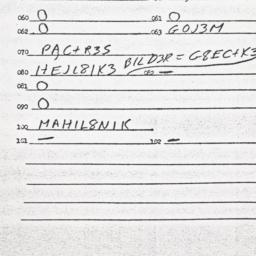 060 0 061 0
062 0 063 GOJ3M
070 PAC+R3S
080 HEJL8IK3 BILD2R = G8EC+K3
081 0
090 0
100 MAHIL8NIK
101 — 102 —